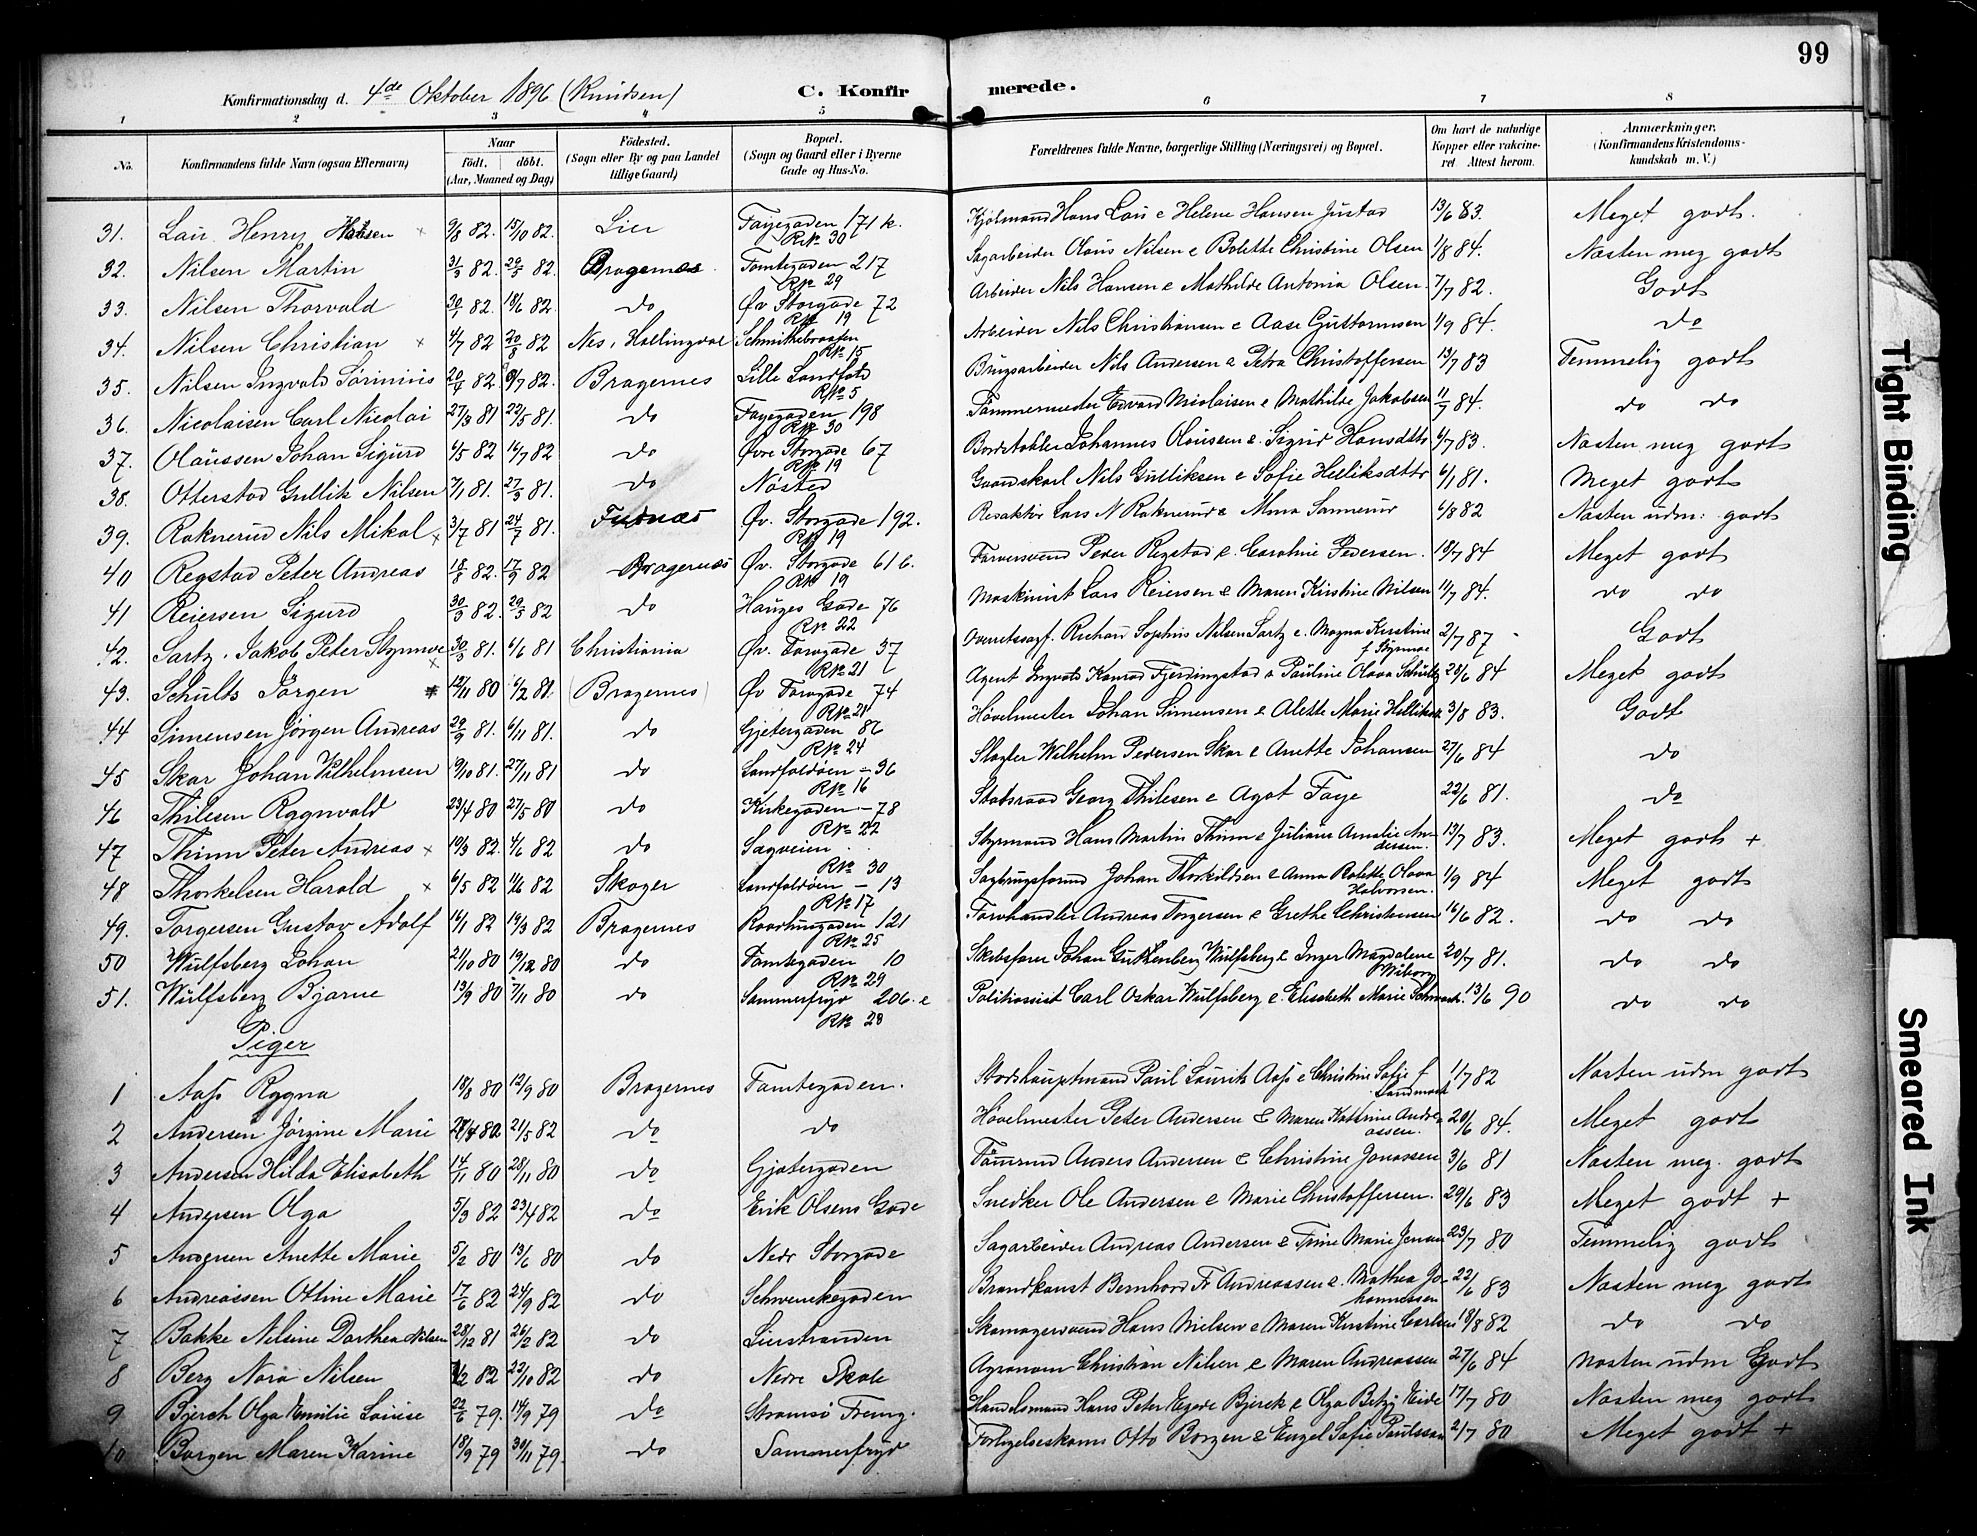 99
Konfirmationsdag d. 4de Oktober 1896 (Knudsen)
C. Konfirmerede.
1 2 3 4 5 6 7 8
No. Konfirmandens fulde Navn (ogsaa Efternavn) Naar födt. döbt. (Aar, Maaned og Dag) Födested. (Sogn eller By og paa Landet tillige Gaard) Bopæl. (Sogn og Gaard eller i Byerne Gade og Hus-No. Forældrenes fulde Navne, borgerlige Stilling (Næringsvei) og Bopæl. Om havt de naturlige Kopper eller vakcineret. Attest herom. Anmærkninger. (Konfirmandens Kristendomskundskab m. V.)
31. Lau Henry Hansen × 9/8 82. 15/10 82. Lier Fayegaden 171 k. R№ 30 Kjøbmand Hans Lau & Helene Hansen Justad 13/6 83. Meget godt.
32. Nilsen Martin 31/3 82. 29/5 82. Bragernæs Tomtegaden 217 R№ 29 Sagarbeider Olaus Nilsen & Bolette Christine Olsen 1/8 84. Næsten meg godt
33. Nilsen Thorvald 30/1 82. 18/6 82. do Øv. Storgade 72 R№ 19 Arbeider Nils Hansen & Mathilde Antonia Olsen 7/7 82. Godt
34. Nilsen Christian × 4/7 82 20/8 82 Nes, Hallingdal Schmittebraaten R№ 15 Arbeider Nils Christiansen & Aase Guttormsen 1/9 84. do
35. Nilsen Ingvald Sørinius 20/4 82. 9/7 82. Bragernes Lille Landfald R№ 5 Brugsarbeider Nils Andersen & Petra Christoffersen 13/7 83 Temmelig godt
36. Nicolaisen Carl Nicolai 27/3 81 22/5 81. do Fayegaden 198 R№ 30 Tømmermester Edvard Nicolaisen & Mathilde Jakobsen 11/7 84. do do
37. Olaussen Johan Sigurd 4/5 82 16/7 82 do Øvre Storgade 67 R№ 19 Bordstabler Johannes Olaussen & Sigrid Hansdttr 6/7 83. Næsten meg godt
38. Otterstad Gullik Nilsen 7/1 81. 27/3 81. do Nøsted Gaardskarl Nils Gulliksen & Sofie Helliksdttr 6/1 81. Meget godt
39. Raknerud Nils Mikal × 3/7 81 24/7 81. Øv. Storgade 192. R№ 19 Redaktør Lars N Raknerud & Mina Sannerud 6/8 82 Næsten udm: godt
40 Regstad Peter Andreas 18/8 82. 17/9 82 Bragernæs Øv. Storgade 61 b. R№ 19 Farversvend Peder Regstad & Caroline Pedersen. 18/7 84 Meget godt
41 Reiersen Sigurd 30/3 82. 29/5 82 do Hauges Gade 76 R№ 22 Maskinist Lars Reiersen & Maren Kirstine Nilsen 11/7 84. do do
42. Sartz, Jakob Peter Stynmoe × 30/3 81. 6/6 81 Christiania Øv. Torvgade 37 R№ 21 Overretssagf. Richard Sophus Nilsen Sartz & Magna Kirstine f. Stynmoe 2/7 87 Godt
43. Schults Jørgen 12/11 80 6/2 81. (Bragernes) Øv Torvgade 74 R№ 21 Agent Ingvald Konrad Fjerdingstad & Pauline Olava Schultz 23/6 84 Meget godt
44 Simensen Jørgen Andreas 29/9 81. 6/11 81. do Gjetergaden 86 R№ 24 Høvelmester Johan Simensen & Alette Marie Helliksdt 3/8 83. Godt
45 Skar Johan Vilhelmsen 9/10 81. 27/11 81 do Landfaldøen - 36 R№ 16 Slagter Wilhelm Pedersen Skar & Anette Johansen 27/6 84 do
46 Thilesen Rognvald 23/4 80 27/5 80 do Kirkegaden - 78 R№ 22 Statsraad Georg Thilesen & Agot Faye 22/6 81. do
47 Thinn Peter Andreas × 10/3 82. 4/6 82 do Sagveien R№ 30 Styrmand Hans Martin Thinn & Juliane Amalie Andersen 13/7 83. Meget godt +
48 Thorkelsen Harald × 6/5 82 11/6 82 Skoger Landfaldøen - 13 R№ 17 Sagbrugsformd Johan Thorkildsen & Anna Bolette Olava Halvorsen. 1/9 84 Meget godt
49. Torgersen Gustav Adolf 16/1 82 19/3 82 Bragernes Raadhusgaden 121 R№ 25 Torvhandler Andreas Torgersen & Grethe Christensen 16/6 82. do do
50 Wulfsberg Johan 21/10 80 19/12 80 do Tomtegaden 10 R№ 29 Skibsfører Johan Guttenberg Wulfsberg & Inger Magdalene Wiborg 20/7 81. do do
51. Wulfsberg Bjarne 13/9 80 7/11 80 do Sommerfryd 206. e R№ 28 Politiassist Carl Oskar Wulfsberg & Elisabeth Marie 13/6 90 do do
Piger
1 Aass Rogna 18/8 80 12/9 80 Bragernes Tomtegaden. Stadshauptmand Paul Lauritz Aass & Christine Sofie f Landmark 1/7 82 Næsten udm godt
2 Andersen Jørgine Marie 28/4 82 21/5 82 do do Høvelmester Peter Andersen & Maren Kathrine Andreassen. 20/6 84. Meget godt
3 Andersen Hilda Elisabeth 14/11 80 28/11 80 do Gjetergaden Tømmd Anders Andersen & Christine Jonassen 3/6 81 Næsten meg. godt
4 Andersen Olga 5/3 82 23/4 82 do Erik Olsens Gade Snedker Ole Andersen & Marie Christoffersen. 29/6 83 Meget godt +
5 Andersen Anette Marie 5/2 80 13/6 80 do Nedr Storgade Sagarbeider Andreas Andersen & Trine Marie Jensen 23/7 80 Temmelig godt
6 Andreassen Ottine Marie 17/6 82 24/9 82 do Schwenckegaden Brandkonst Bernhard Fr Andreassen & Mathea Johannessen 22/6 83 Næsten meg godt
7 Bakke Nilsine Dorthea Nilsen 28/12 81 26/2 82 do Lierstranden Skomagersvend Hans Nielsen & Maren Kirstine Carlsen 18/8 82 do do
8 Berg Nora Nilsen 22/10 82 do Nedre Skole Agronom Christian Nilsen & Maren Andreassen 27/6 84 Næsten udm Godt
9 Bjerch Olga Emilie Louise 22/6 79. 14/9 79 do Strømsø Freing. Handelsmand Hans Peter Egede Bjerck & Olga Betzy Eide 17/7 80 Næsten meg godt
10 Borgen Maren Karine 18/9 79 30/11 79. do Sommerfryd Forligelseskoms Otto Borgen & Engel Sofie Paulssen 2/7 80 Meget godt +
Tight Binding
Smeared Ink